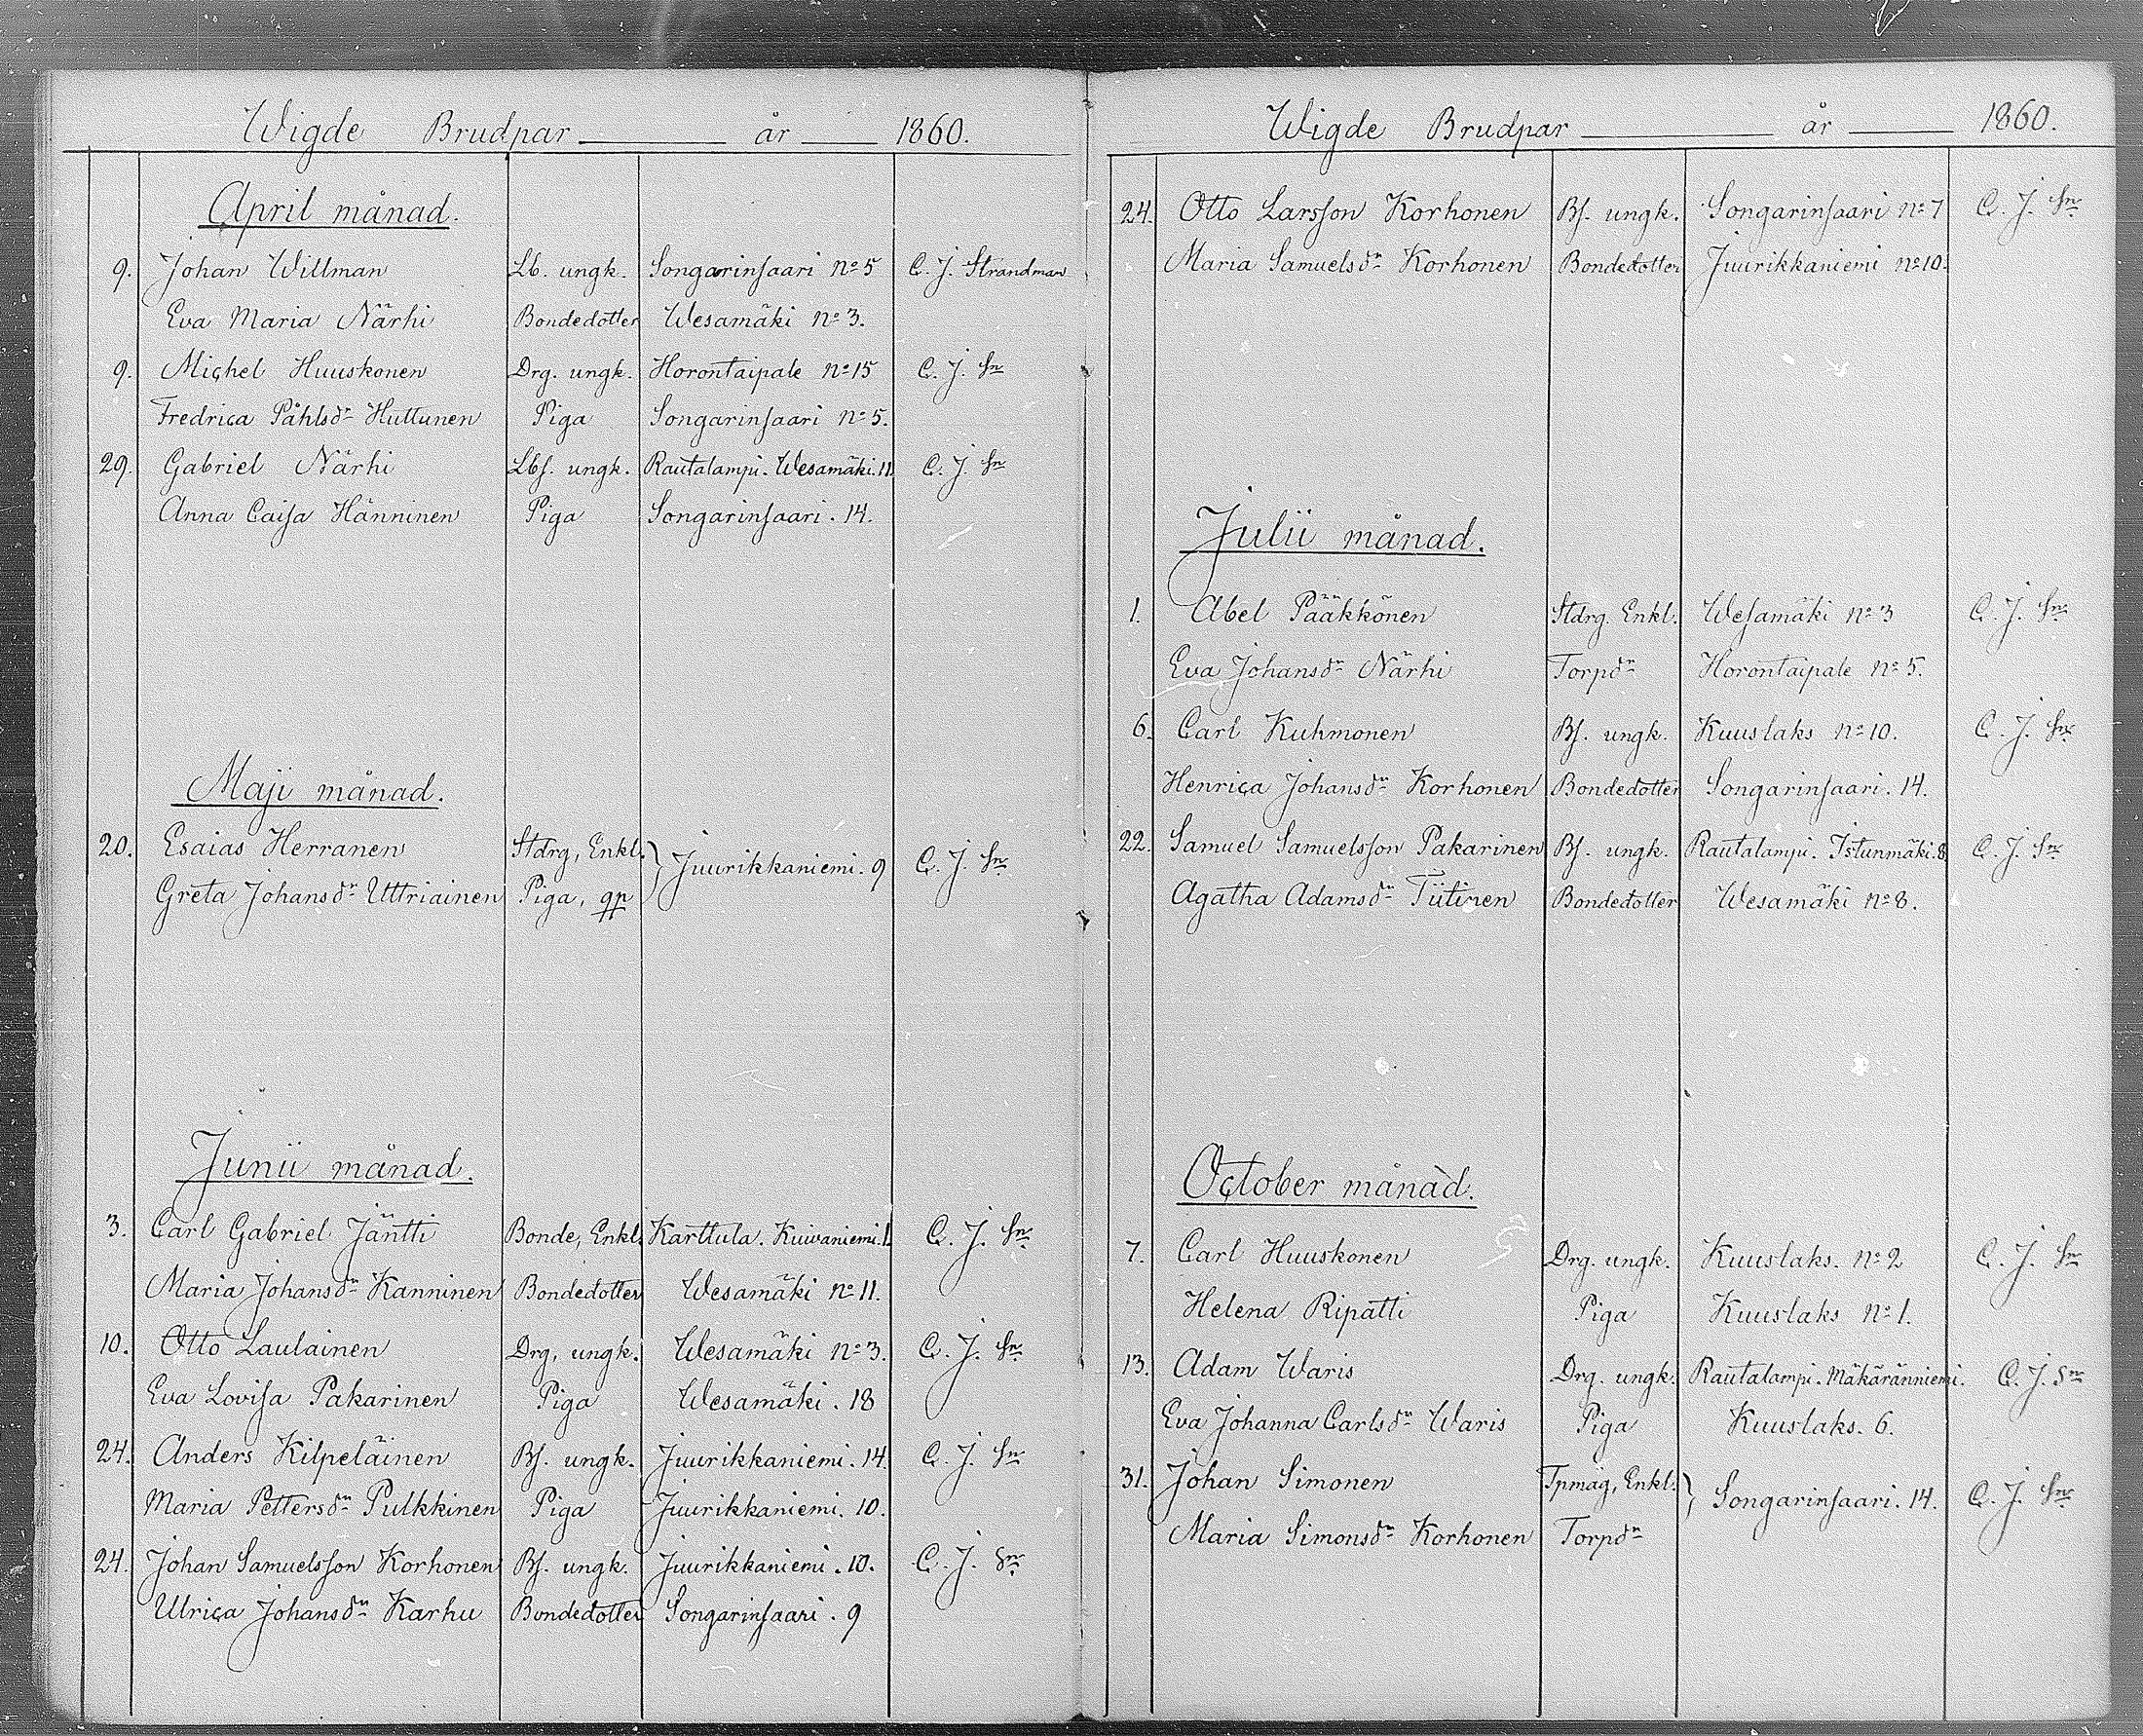 Wigde Brudpar år 1860.
April månad.
9. Johan Willman Lb. ungk. Songarinsaari No 5 C. J. Strandman
Eva Maria Närhi Bondedotter Wesamäki No 3.
9. Michel Huuskonen Drg. ungk. Horontaipale No 15 C. J. Sn
Fredrica Påhlsdr Huttunen Piga Songarinsaari No 5.
29. Gabriel Närhi Lbs. ungk. Rautalampi. Wesamäki. 11. C. J. Sn
Anna Caisa Hänninen Piga Songarinsaari. 14.
Maji månad.
20. Esaias Herranen Stdrg, Enkl. Juurikkaniemi. 9 C. J. Sn
Greta Johansdr Uttriainen Piga, qp
Junii månad.
3. Carl Gabriel Jäntti Bonde, Enkl. Karttula. Kuivaniemi. 1. C. J. Sn
Maria Johansdr Kanninen Bondedotter Wesamäki No 11.
10. Otto Laulainen Drg, ungk. Wesamäki No 3. C. J. Sn
Eva Lovisa Pakarinen Piga Wesamäki. 18
24. Anders Kilpeläinen Bs. ungk. Juurikkaniemi. 14. C. J. Sn
Maria Pettersdr Pulkkinen Piga Juurikkaniemi. 10.
24. Johan Samuelsson Korhonen Bs. ungk. Juurikkaniemi. 10. C. J. Sn
Ulrica Johansdr Karhu Bondedotter Songarinsaari. 9
Wigde Brudpar år 1860.
24. Otto Larsson Korhonen Bs. ungk. Songarinsaari No 7 C. J. Sn
Maria Samuelsdr Korhonen Bondedotter Juurikkaniemi No 10.
Julii månad.
1. Abel Pääkkönen Stdrg. Enkl. Wesamäki No 3 C. J. Sn
Eva Johansdr Närhi Torpdr Horontaipale No 5.
6. Carl Kuhmonen Bs. ungk. Kuuslaks No 10. C. J. Sn
Henrica Johansdr Korhonen Bondedotter Songarinsaari. 14.
22. Samuel Samuelsson Pakarinen Bs. ungk. Rautalampi. Istunmäki. 8. C. J. Sn
Agatha Adamsdr Tiitinen Bondedotter Wesamäki No 8.
October månad.
7. Carl Huuskonen Drg. ungk. Kuuslaks. No 2 C. J. Sn
Helena Ripatti Piga Kuuslaks No 1.
13. Adam Waris Drg. ungk. Rautalampi. Mäkäränniemi. C. J. Sn
Eva Johanna Carlsdr Waris Piga Kuuslaks. 6.
31. Johan Simonen Tpmåg, Enkl. Songarinsaari. 14. C. J. Sn
Maria Simonsdr Korhonen Torpdr